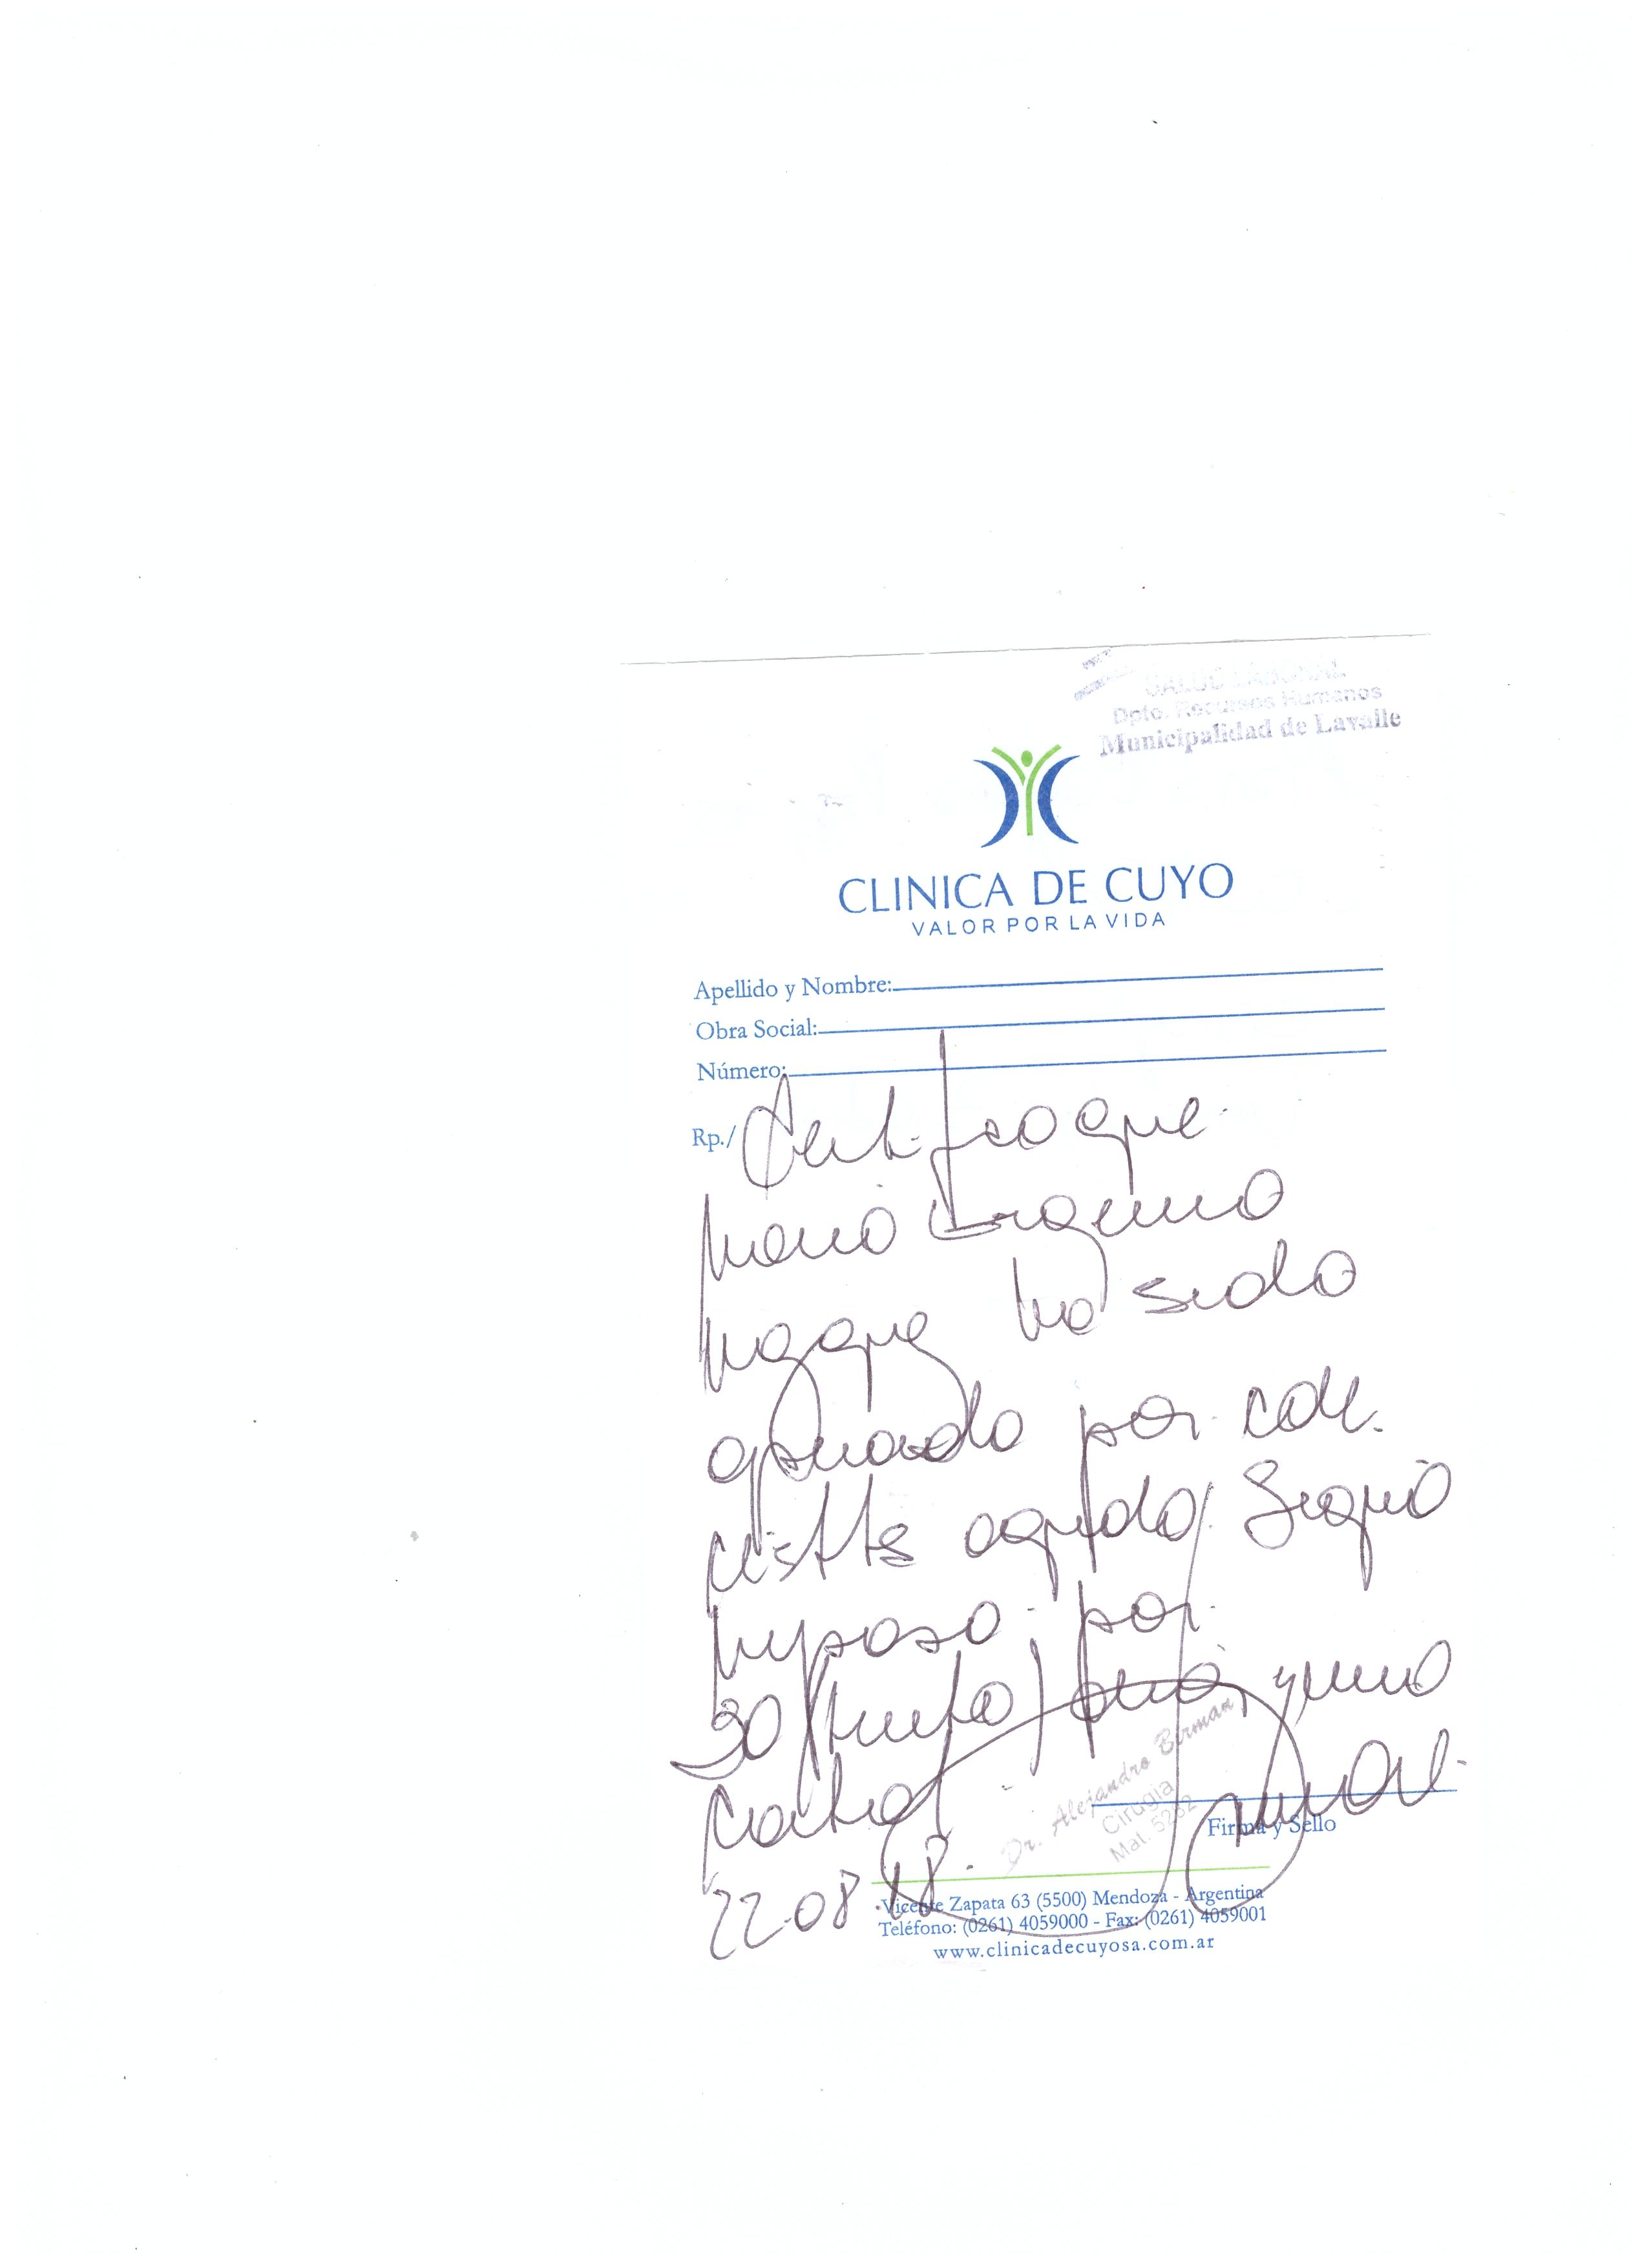 SALUD LABORAL
Dpto. Recursos Humanos
Municipalidad de Lavalle
CLINICA DE CUYO
VALOR POR LA VIDA
Apellido y Nombre:
Obra Social:
Número:
Rp./ Certifico que
Maria Eugenia
ha sido
operada por cole
cistitis aguda. Sequió
reposo por
30 (treinta) dias
22.08.18.
Dr. Alejandro Birman
Cirugía
Mat. 5232
Firma y Sello
Vicente Zapata 63 (5500) Mendoza - Argentina
Teléfono: (0261) 4059000 - Fax: (0261) 4059001
www.clinicadecuyosa.com.ar